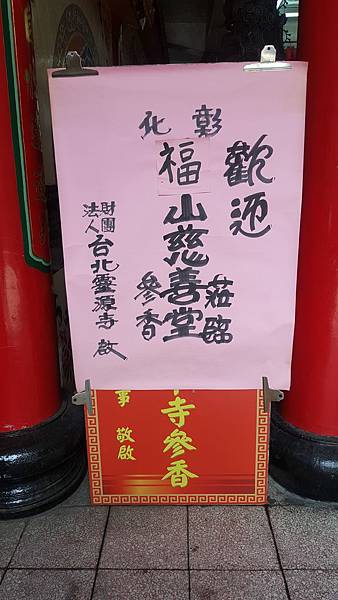 歡迎
彰北
福山慈善堂
蒞臨
參香
財團法人台北靈源寺 啟
寺參香
敬啟